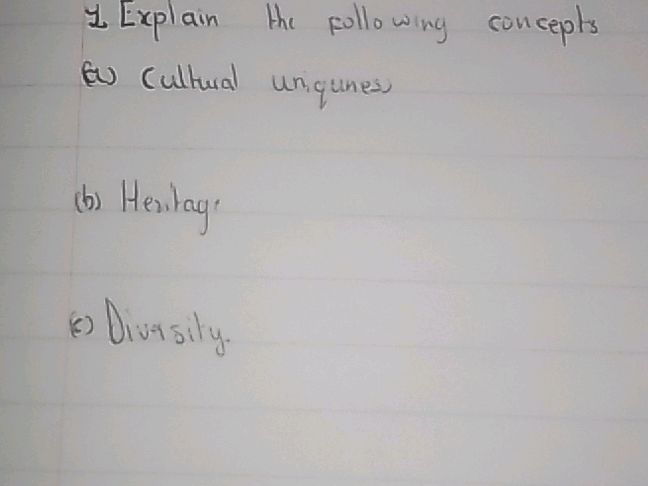 1 Explain the following concepts
(a) Cultural uniqunes
(b) Heritage
(c) Diversity.